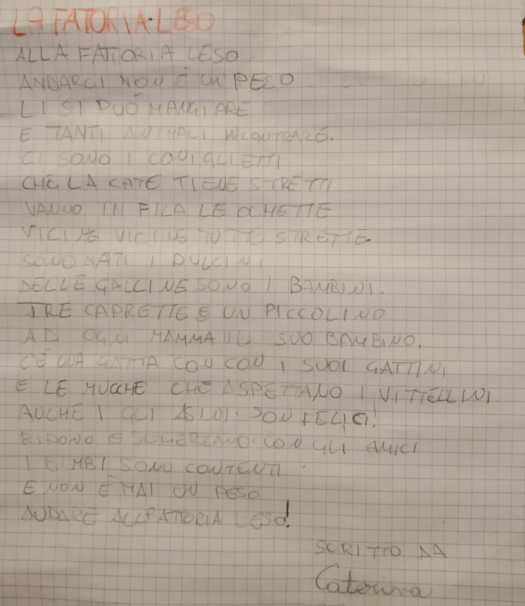 LA FATORIA LESO
ALLA FATTORIA LESO
ANDARCI NON É UN PESO
LI SI PUÓ MANGIARE
E TANTI ANIMALI INCONTRARE.
CI SONO I CONIGLIETTI
CHE LA CATE TIENE STRETTI
VANNO IN FILA LE OCHETTE
VICINE VICINE TUTTE STRETTE.
SONO NATI I PULCINI
DELLE GALLINE SONO I BAMBINI.
TRE CAPRETTE E UN PICCOLINO
AD OGNI MAMMA IL SUO BAMBINO.
C'É UNA GATTA CON CON I SUOI GATTINI
E LE MUCCHE CHE ASPETTANO I VITTELLINI
ANCHE I ASINI SON FELICI!
RIDONO E CON GLI AMICI
I BIMBI SONO CONTENTI
E NON É MAI UN PESO
ANDARE ALL FATTORIA LESO!
SCRITTO DA
Caterina